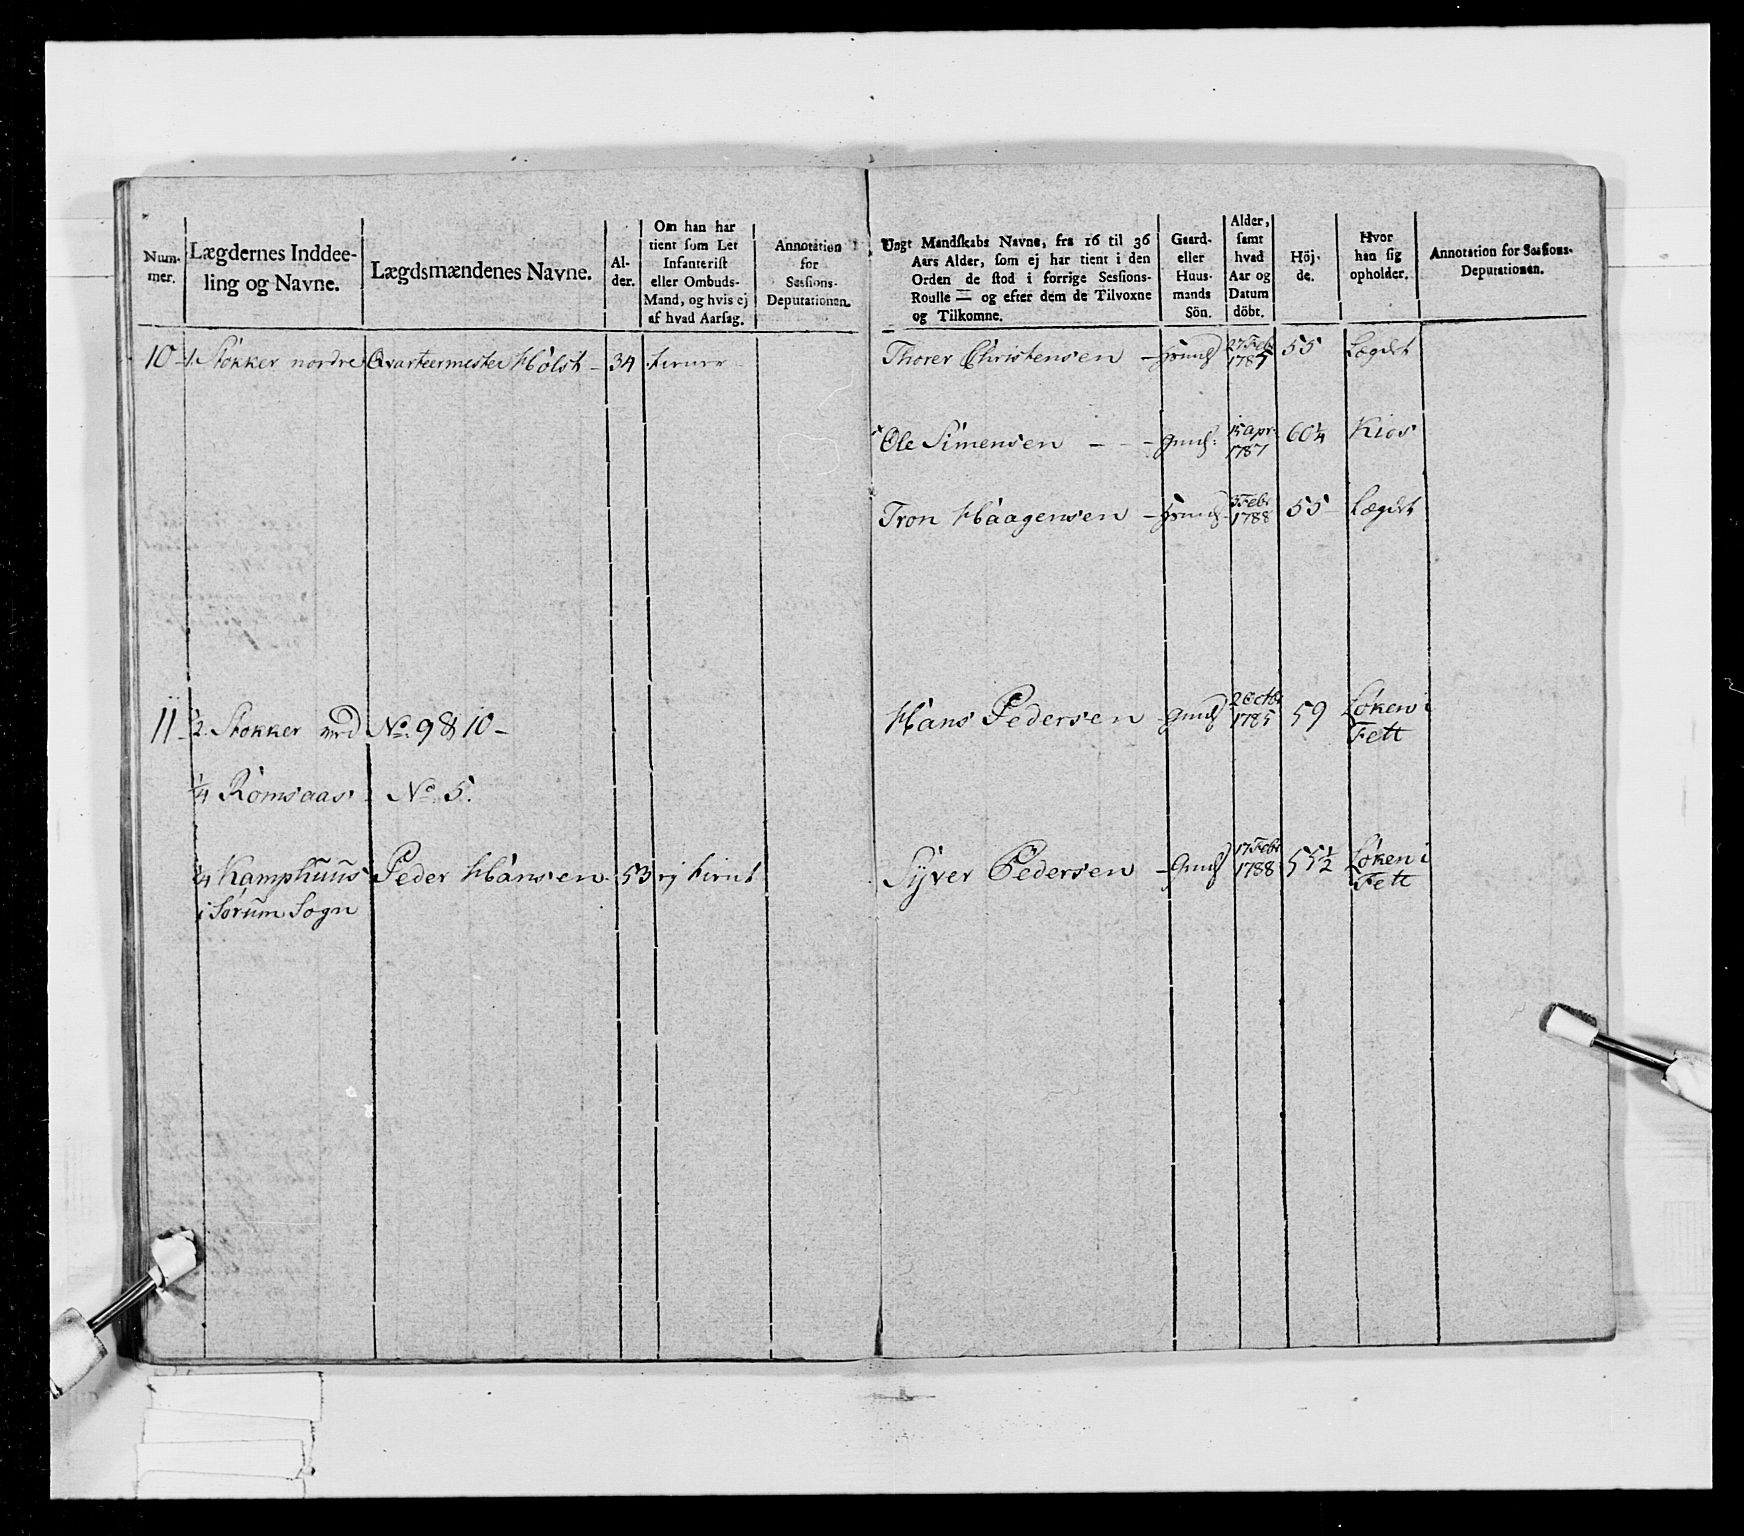 Num-
mer.
Lægdernes Inddee-
ling og Navne.
Lægdsmændenes Navne.
Al-
der.
Om han har
tient som Let
Infanterist
eller Ombuds-
Mand, og hvis ej
af hvad Aarsag.
Annotation
for
Sessions-
Deputationen.
10 - 1. Stokker nordre Qvarteermester Holst - 34
11 - ½ Stokker No. 9 & 10 -
¼ Romsaas No 5.
¼ Kamphuus Peder Hansen 53 ej tient
i Sørum Sogn
Ungt Mandskabs Navne, fra 16 til 36
Aars Alder, som ej har tient i den
Orden de stod i forrige Sessions-
Roulle — og efter dem de Tilvoxne
og Tilkomne.
Gaard-
eller
Huus-
mands
Sön.
Alder,
samt
hvad
Aar og
Datum
döbt.
Höj-
de.
Hvor
han sig
opholder.
Annotation for Sessions-
Deputationen.
Thorer Christensen - 27 Feb 55 Lægdet
Ole Simensen - - - 15 apr. 60¼ Kios
1787
Tron Haagensen - 3 Febr 55 Lægdet
1788
Hans Pedersen - 2 Octbr 59 Løken i
1785 Fett
Syver Pedersen - 17 Febr 55½ Løken i
1788 Fett